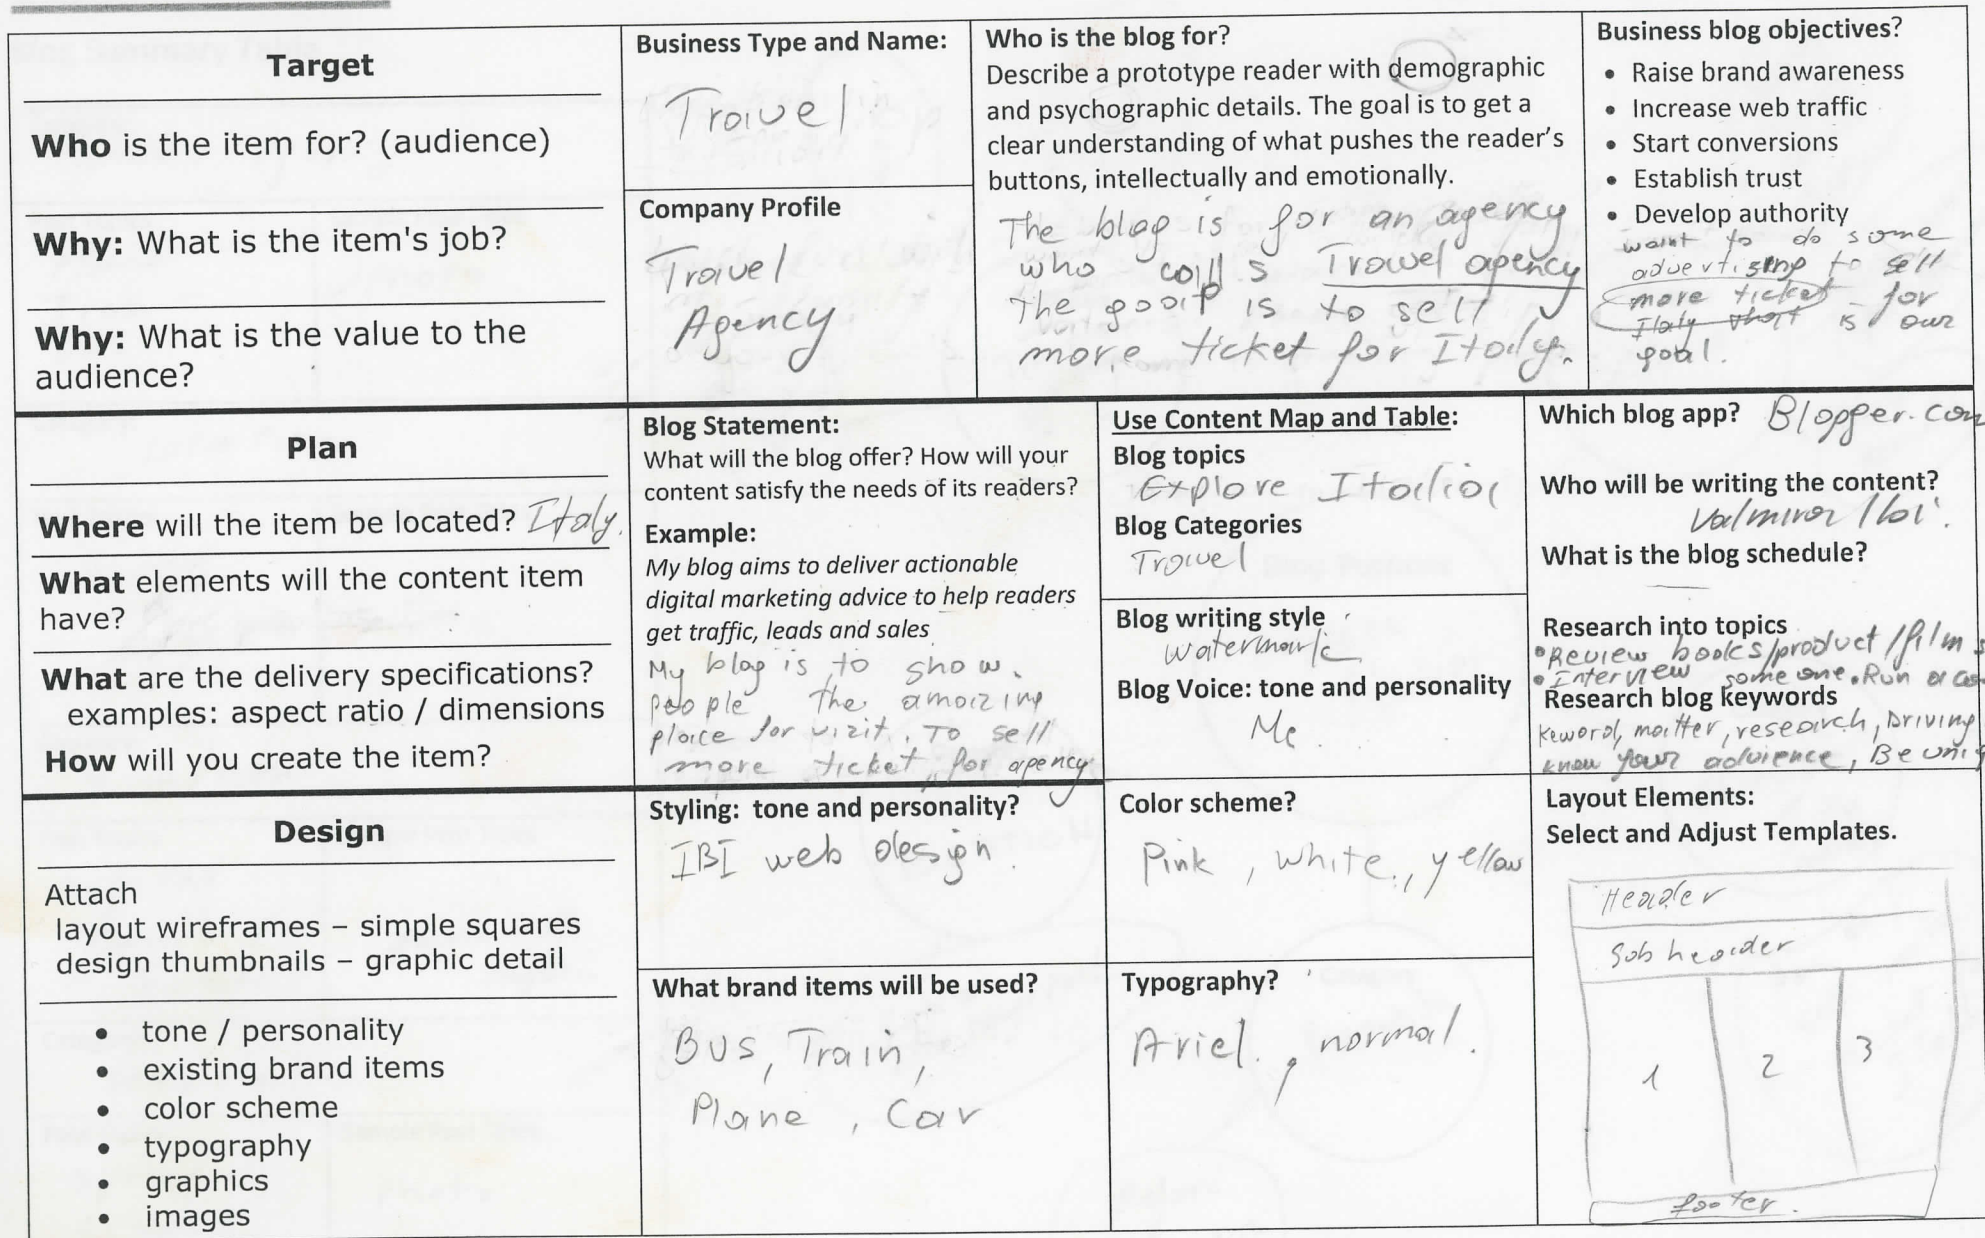 Target
Who is the item for? (audience)
Why: What is the item's job?
Why: What is the value to the
audience?
Business Type and Name:
Travel
Company Profile
Travel
Agency
Who is the blog for?
Describe a prototype reader with demographic
and psychographic details. The goal is to get a
clear understanding of what pushes the reader's
buttons, intellectually and emotionally.
The blog is for an agency
who call s Travel agency
the goal is to sell
more ticket for Italy.
Business blog objectives?
• Raise brand awareness
• Increase web traffic
• Start conversions
• Establish trust
• Develop authority
want to do some
advertising to sell
more ticket for
Italy that is our
goal.
Plan
Where will the item be located? Italy.
What elements will the content item
have?
What are the delivery specifications?
examples: aspect ratio / dimensions
How will you create the item?
Blog Statement:
What will the blog offer? How will your
content satisfy the needs of its readers?
Example:
My blog aims to deliver actionable
digital marketing advice to help readers
get traffic, leads and sales
My blog is to show
people the amazing
place for vizit. To sell
more ticket for agency
Use Content Map and Table:
Blog topics
Explore Italia
Blog Categories
Travel
Blog writing style
Watermark
Blog Voice: tone and personality
Me.
Which blog app? Blogger.com
Who will be writing the content?
What is the blog schedule?
Research into topics
• Review books/product/films
• Interview someone. Run a
Research blog keywords
keword, matter, research, Driving
know your advience, Be
Design
Attach
layout wireframes – simple squares
design thumbnails – graphic detail
• tone / personality
• existing brand items
• color scheme
• typography
• graphics
• images
Styling: tone and personality?
IBI web design.
Color scheme?
Pink, white, yellow
What brand items will be used?
Bus, Train,
Plane, Car
Typography?
Ariel, normal.
Layout Elements:
Select and Adjust Templates.
Header
Sub header
1 2 3
footer.